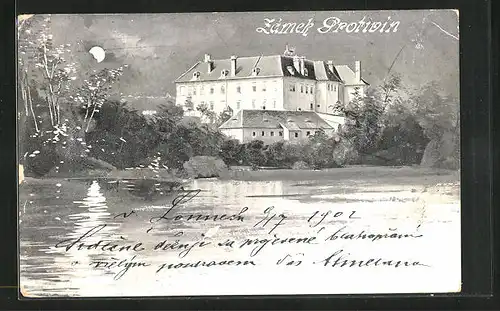 Zámek Protivin
v Lomnech 9/7 1902
Srdečně děkuji za projevené blahopřání
a milým pozdravem Vás